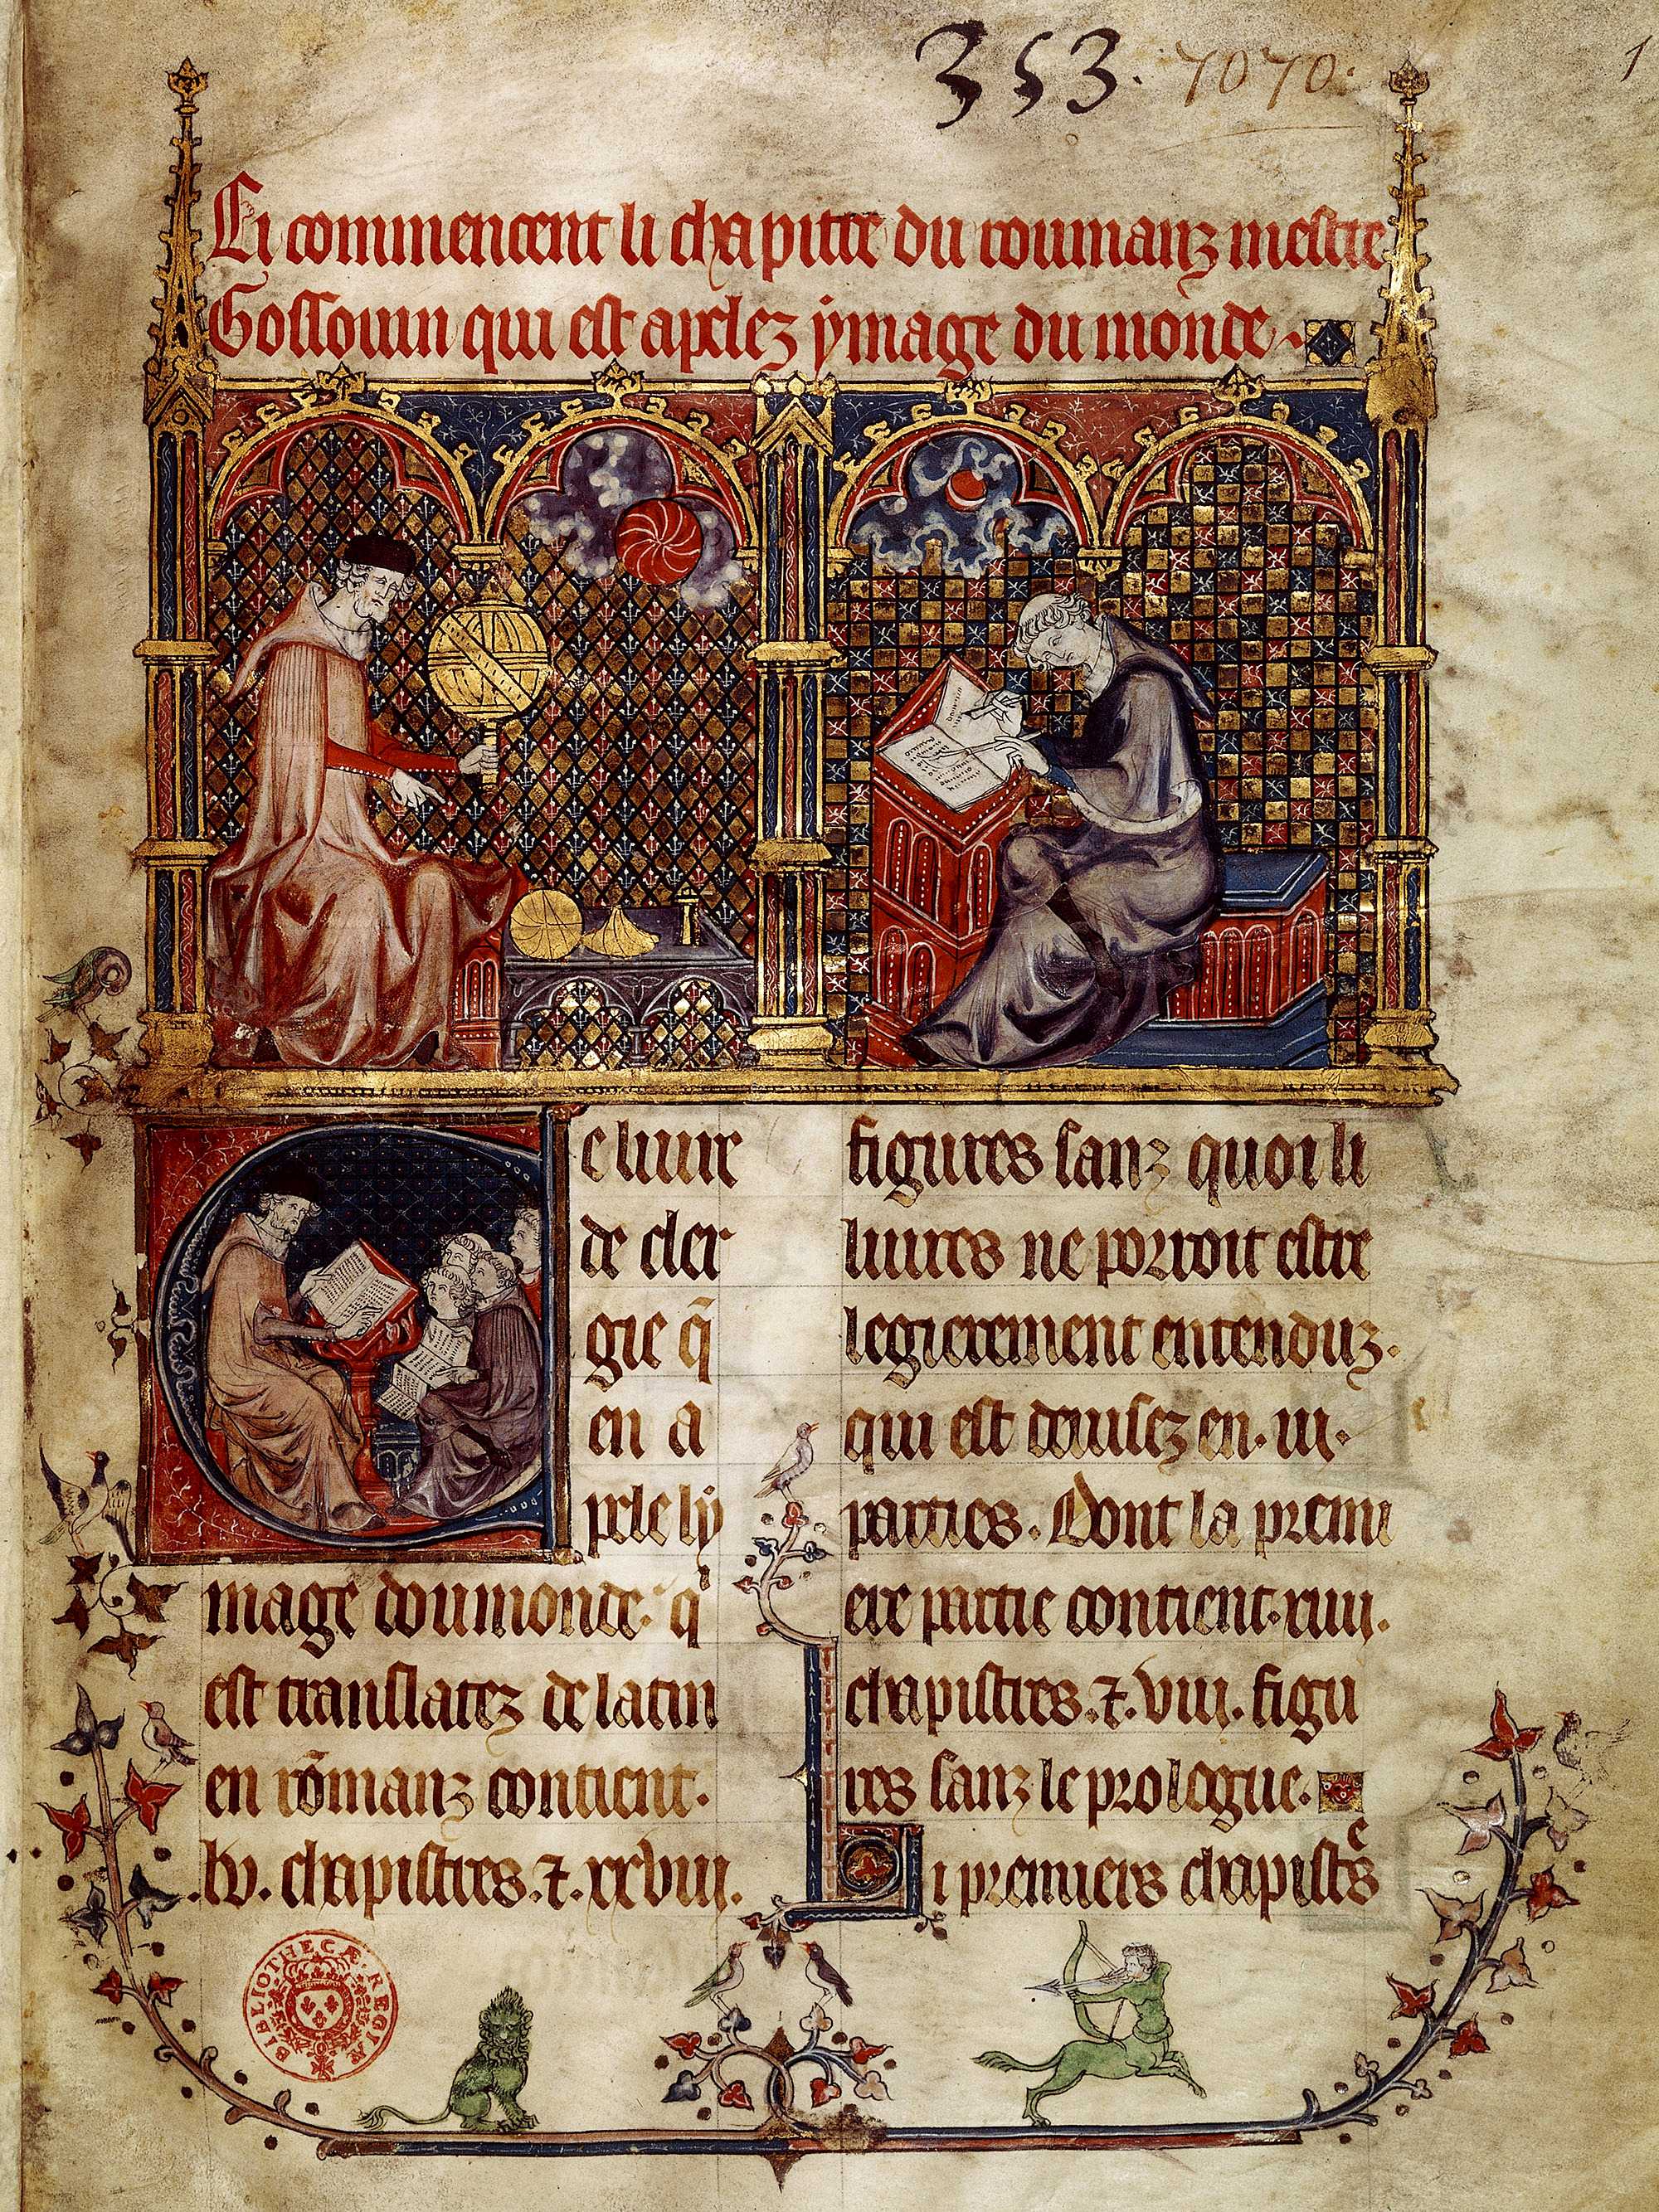 353. 7070.
1
Ci commencent li chapitre du roumanz mestre
Gossouin qui est apelez ymage du monde.
Ce liure
de cler
gie q̃
en a
pele ly
mage dou monde. qͥ
est translatez de latin
en rõmanz contient.
.lv. chapistres. ⁊. xxviij.
figures sanz quoi li
liures ne porroit estre
legierement entenduz.
qui est deuisez en. iij.
parties. Dont la premi
ere partie contient. xiiij.
chapistres. ⁊. viij. figu
res sanz le prologue.
Li premiers chapistͤs
BIBLIOTHECÆ REGIÆ